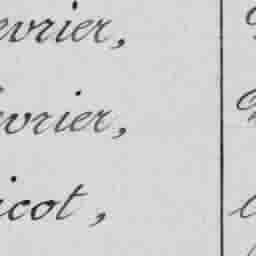 evrier,
vrier,
icot,